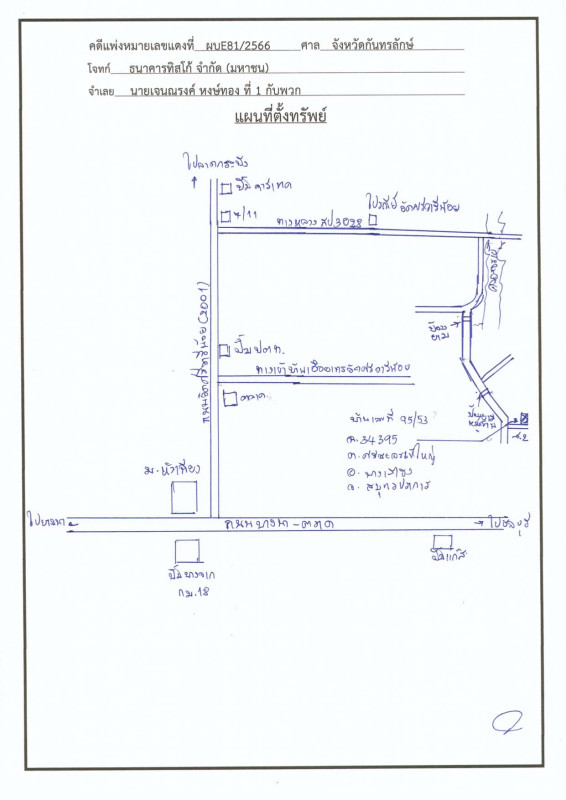 คดีแพ่งหมายเลขแดงที่ ผบE81/2566 ศาล จังหวัดกันทรลักษ์
โจทก์ ธนาคารทิสโก้ จำกัด (มหาชน)
จำเลย นายเจนณรงค์ หงษ์ทอง ที่ 1 กับพวก
แผนที่ตั้งทรัพย์
ไปลาดกระบัง
ปั๊ม คาร์เทค
7/11
ไปรษณีย์
ทางหลวง สป 3028
(2001)
ป้อม
ยาม
ปั๊ม ปตท.
ทางเข้าบ้านเอื้ออาทร
ตลาด
บ้านเลขที่ 95/53
ฉ.34395
ต. ศีรษะจรเข้ใหญ่
อ. บางเสาธง
จ. สมุทรปราการ
ซ.2
ม. หัวเฉียว
ไปบางนา
ถนนบางนา - ตราด
ไปชลบุรี
ปั๊มบางจาก
กม.18
ปั๊มแก๊ส